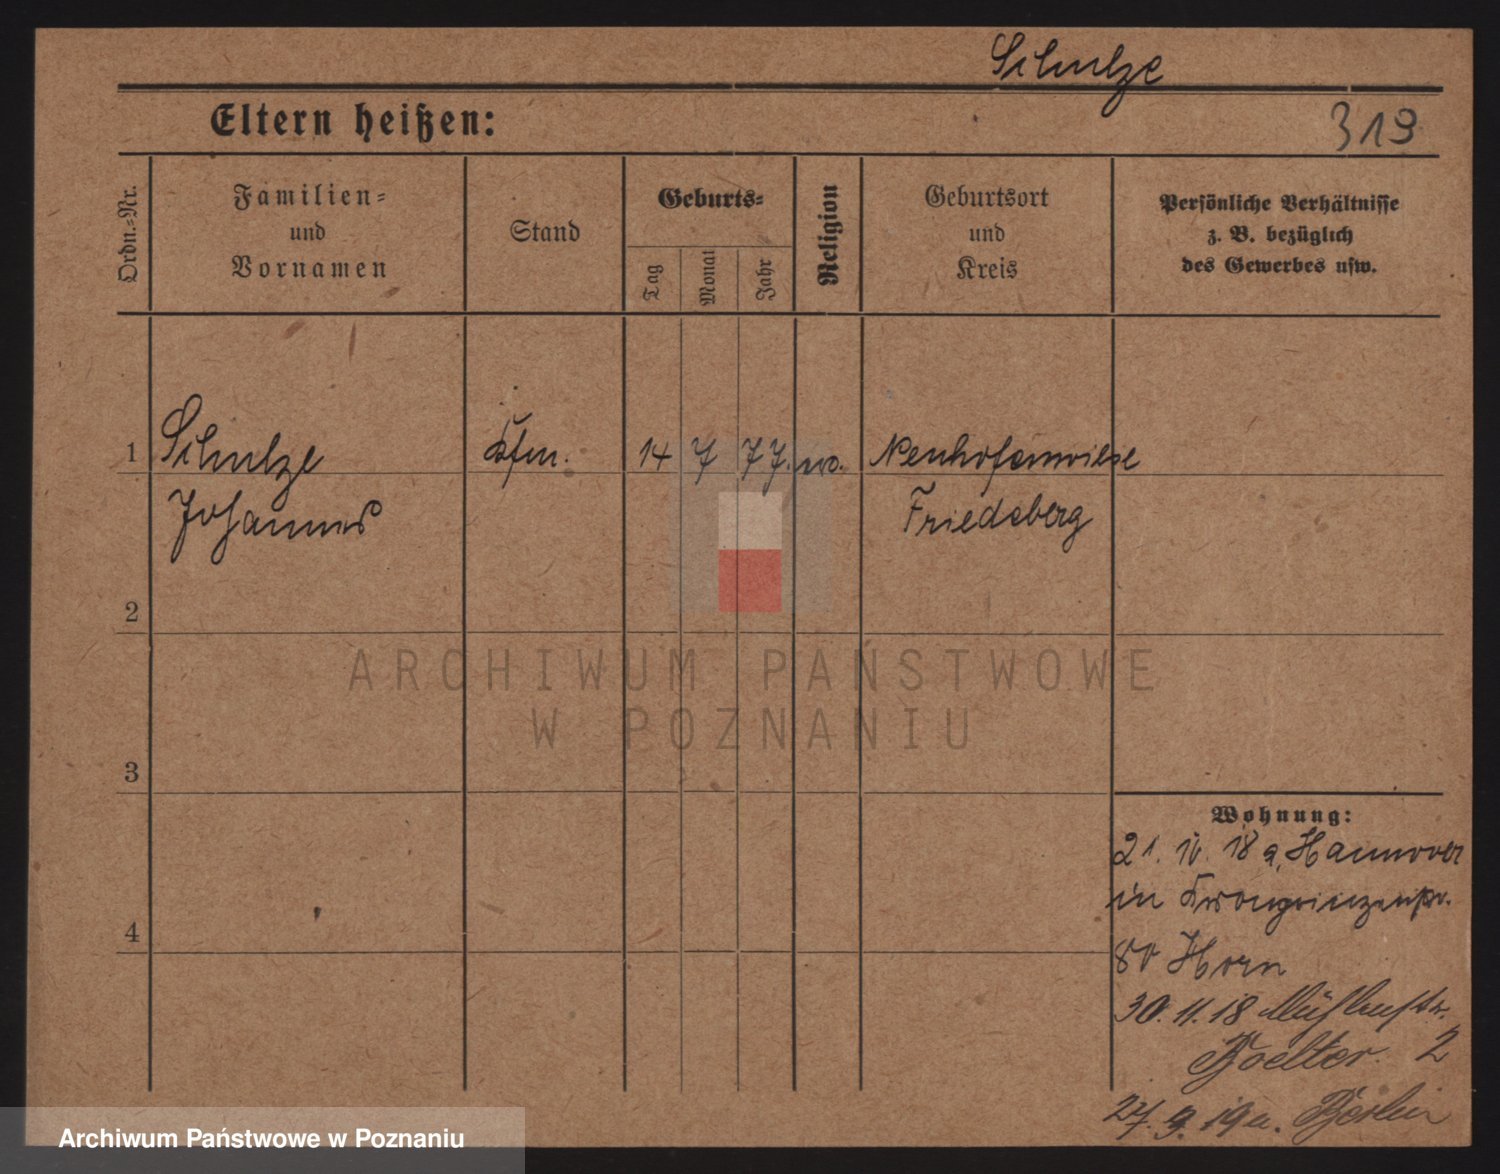 Schulze
Eltern heißen:
319
Ordn.-Nr.
Familien-
und
Vornamen
Stand
Geburts-
Tag
Monat
Jahr
Religion
Geburtsort
und
Kreis
Persönliche Verhältnisse
z. B. bezüglich
des Gewerbes usw.
1
Schulze
Kfm.
14
7
77.
Johannes
Friedeberg
2
ARCHIWUM PAŃSTWOWE
W POZNANIU
3
Wohnung:
21. 18 a. Hannover
in Kronprinzenstr.
80 Horn
4
30. 11. 18 Mühlenstr.
Boelter. 2
27. 9. 19 a. Berlin
Archiwum Państwowe w Poznaniu